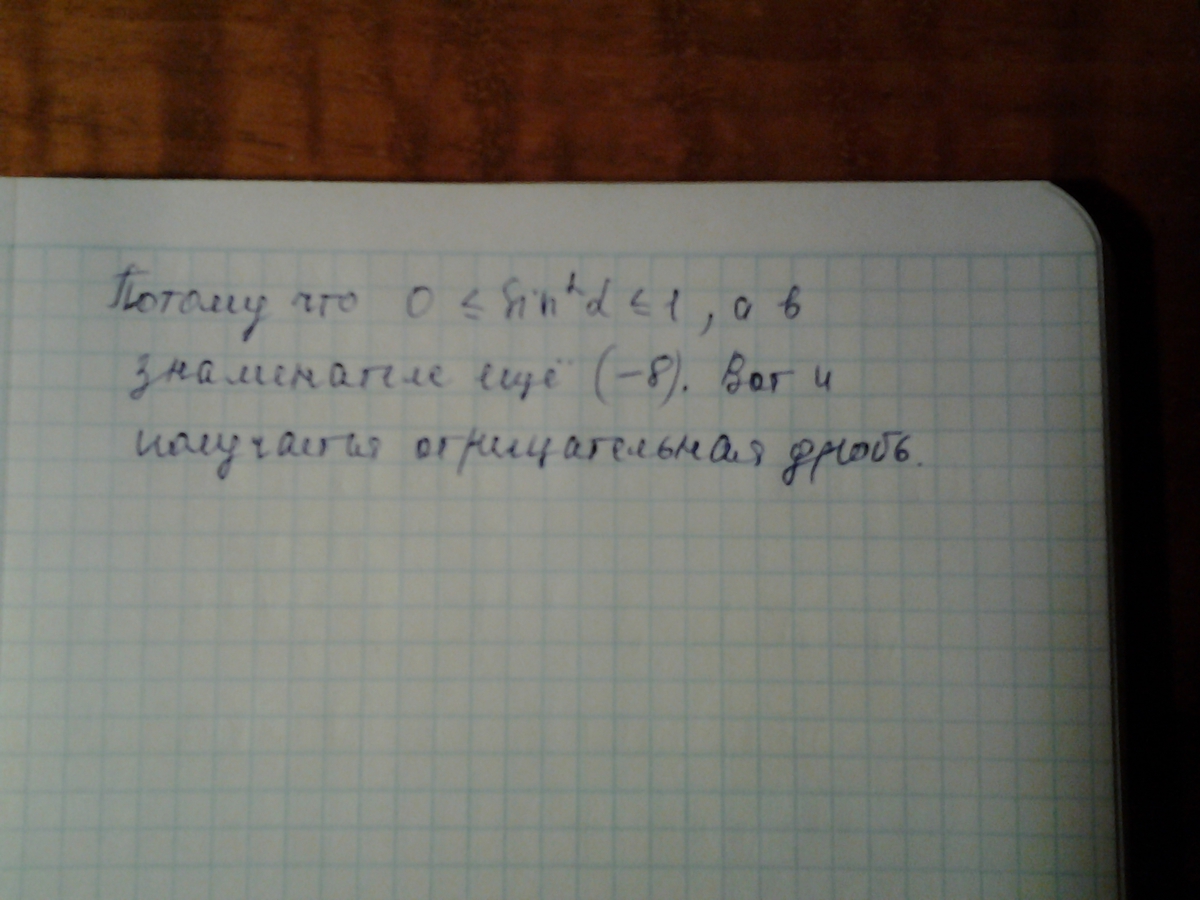 Потому что 0 ≤ sin²α ≤ 1, а в
знаменателе ещё (−8). Вот и
получается отрицательная дробь.